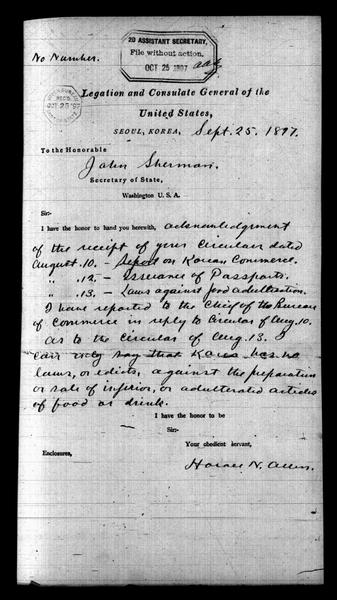 No Number.
2D ASSISTANT SECRETARY,
File without action.
OCT 25 1897
OCT 25 97
Legation and Consulate General of the
United States,
SEOUL, KOREA, Sept. 25. 1897.
To the Honorable
John Sherman,
Secretary of State,
Washington U. S. A.
Sir:-
I have the honor to hand you herewith, acknowledgment
of the receipt of your Circulars dated
August. 10. - Report on Korean Commerce.
" 12. - Issuance of Passports.
" 13. - Laws against food adulteration.
I have reported to the Chief of the Bureau
of Commerce in reply to Circular of Aug. 10.
As to the Circular of Aug. 13. I
can only say that Korea has no
laws, or edicts, against the preparation
or sale of inferior, or adulterated articles
of food or drink.
I have the honor to be
Sir:-
Your obedient servant,
Enclosures,
Horace N. Allen.